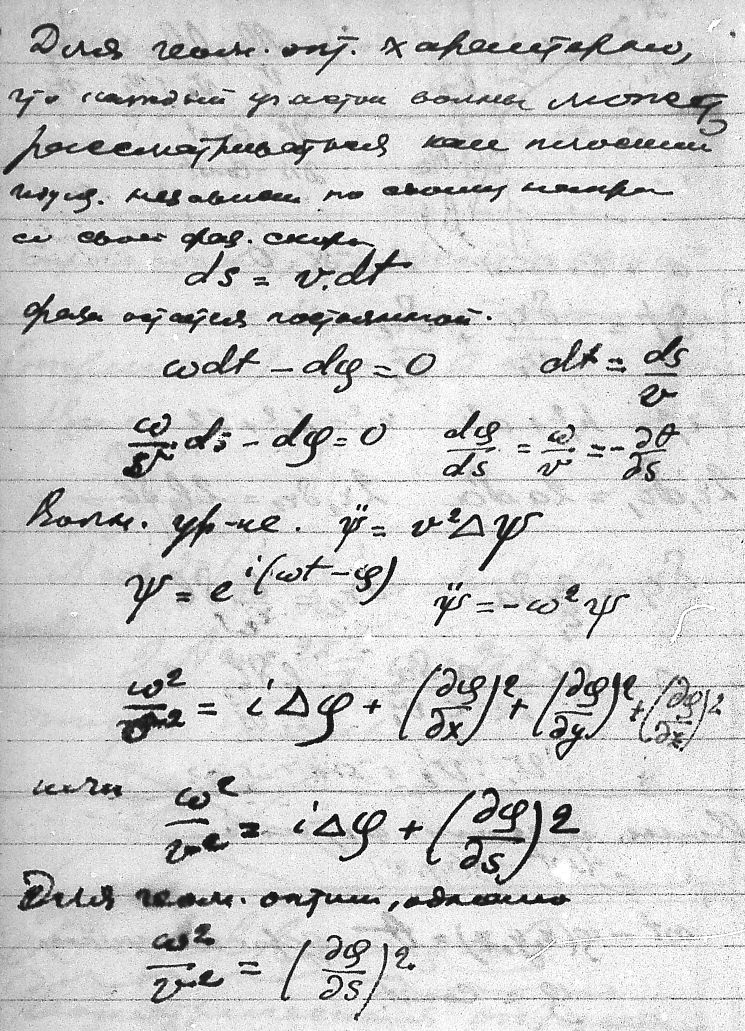 Для геом. опт. характерно,
что каждый участок волны может
рассматриваться как плоский
независим по своему напра
со своей фаз. скор.
ds = v.dt
фаза остается постоянной.
ωdt − dφ = 0 dt = ds/v
ω/v ds − dφ = 0 dφ/ds = ω/v = −∂θ/∂s
Волн. ур-ие. ψ̈ = v²Δψ
ψ = e^{i(ωt − φ)} ψ̈ = −ω²ψ
ω²/v² = iΔφ + (∂φ/∂x)² + (∂φ/∂y)² + (∂φ/∂z)²
или ω²/v² = iΔφ + (∂φ/∂s)²
Для геом. оптик, однако
ω²/v² = (∂φ/∂s)²